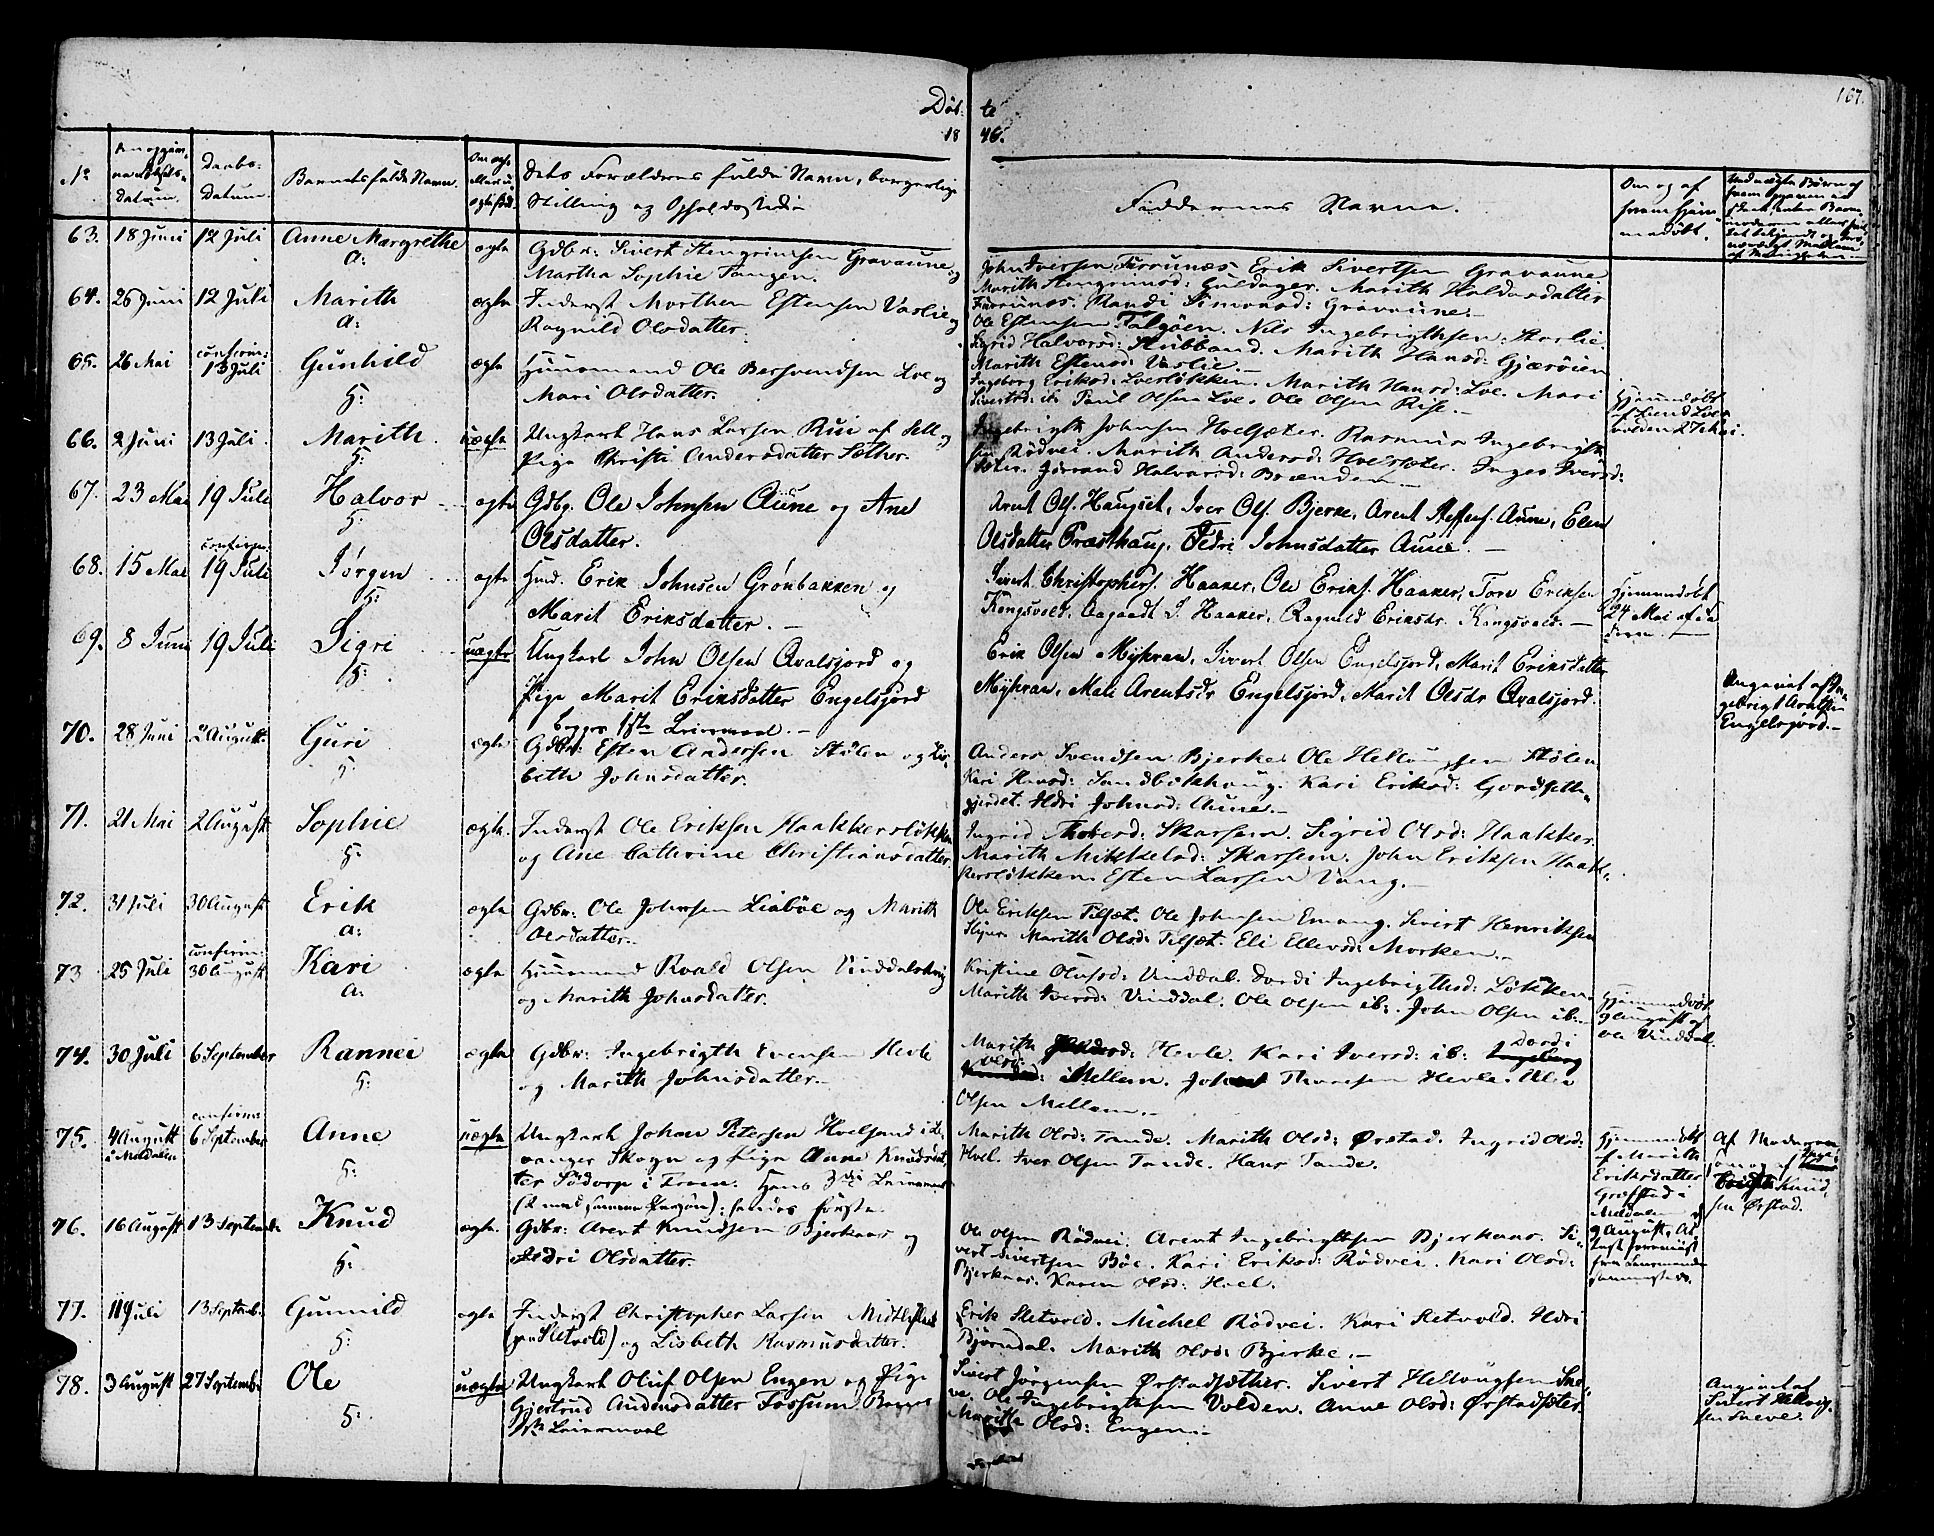 Døb-
te
18
46.
167.
No
Datum.
Daabs-
Datum.
Barnets fulde Navn.
dets Forældres fulde Navn, borgerlige
Stilling og Opholdssted
Faddernes Navne.
Om og af
hvem hjem-
medøbt.
63. 18 Juni 12 Juli Anne Margrethe ægte Gdbr: Sivert Stengrimsen Gravaune og
a: Martha Sophie Tangen.
John Iversen Furrunæs Erik Sivertsen Gravaune
Marith Stengrimsd: Guldager. Marith Haldorsdatter
Furrunæs. Randi Simonsd: Gravaune.
64. 26 Juni 12 Juli Marith ægte Inderst Morthen Estensen Vaslie og
a: Ragnild Olsdatter.
Ole Estensen Talgøen. Nils Ingebrigthsen Storlie.
Sigrid Halvorsd: Stubband. Marith Hansd: Gjærøien
Marith Estensd: Vaslie.
65. 26 Mai confirm: 13 Juli Gunhild ægte Huusmand Ole Bersvendsen Loe og
5: Mari Olsdatter.
Ingeborg Eriksd: Loesløkken. Marith Hansd: Loe. Mari
Sivertsd: ib: Poul Olsen Loe. Ole Olsen Rise.
Hjemmedøbt
66. 2 Juni 13 Juli. Marith uægte Ungkarl Hans Larsen Rui af Sell og
5: Pige Christi Andersdatter Sæther.
Ingebrigth Johnsen Hoelsæter. Rasmus Ingebrigth-
sen Rødvei. Marith Andersd: Hoelsæter. Inger Iversd:
sæter. Jorrand Halvorsd: Brænden.
67. 23 Mai 19 Juli Halvor ægte Gdbg. Ole Johnsen Aune og Ane
5: Olsdatter.
Arent Ols. Haugset, Iver Ols. Bjerke, Arent Steffens. Aune, Elen
Olsdatter Præsthaug, Sedri Johnsdatter Aune.
68. 15 Mai confirm: 19 Juli Jørgen ægte Hmd. Erik Johnsen Grønbakken og
5: Marit Eriksdatter.
Sivert Christophers. Haaker, Ole Eriks. Haaker, Tore Eriksen
Kongsvold, Aagaadt S. Haaker, Ragnild Eriksdr Kongsvold.
Hjemmedøbt
24 Mai af Fa-
deren.
69. 8 Juni 19 Juli Sigri uægte Ungkarl John Olsen Qvalsjord og
5: Pige Marit Eriksdatter Engelsjord
begges 1ste Leiermaal.
Erik Olsen Myhran, Sivert Olsen Engelsjord, Marit Eriksdatter
Myhran, Mali Arentsdr Engelsjord, Marit Olsdr Qvalsjord.
Angivet af In-
gebrigt Arntsen
Engelsjord.
70. 28 Juni 2 August Guri ægte Gdbr: Esten Andersen Stølen og Lis-
5: beth Johnsdatter.
Anders Svendsen Bjerke. Ole Hellougsen Stølen
Kari Hansd: Sandbækhaug. Kari Eriksd: Gorseth-
gjerdet. Ildri Johnsd: Aune.
71. 21 Mai 2 August Sophie ægte. Inderst Ole Eriksen Haakkersløkken
5: og Ane Cathrine Christiansdatter.
Ingrid Skarsem. Sigrid Olsd: Haakker.
Marith Mikkelsd: Skarsem. John Eriksen Haak-
kersløkken. Esten Larsen Vang.
72. 31 Juli 30 August Erik ægte Gdbr: Ole Johnsen Liabøe og Marith
a: Olsdatter.
Ole Eriksen Tilset. Ole Johnsen Emang. Sivert Henriksen
Marith Olsd: Tilset. Eli Ellevsd: Morken.
73 25 Juli confirm: 30 August Kari ægte Huusmand Roald Olsen Vinddalshaug
a: og Marith Johnsdatter.
Kristine Olufsd: Vinddal. Dordi Ingebrigthsd: Løkken
Marith Iversd: Vinddal. Ole Olsen ib:. John Olsen ib:.
Hjemmedøbt
9 August af
Ole Vinddal.
74. 30 Juli 6 September Rannei ægte Gdbr: Ingebrigth Evensen Hevle
5: og Marith Johnsdatter.
Marith Hevle. Kari Iversd: ib: Ingeborg Dordi
Olsd: Mellem. Thoresen Hevle. Ole
Olsen Mellem.
75. 4 August i Meldalen confirm: 6 September Anne uægte Ungkarl Johan Petersen Hoelsand i Le-
5: vanger Skogn og Pige Anne Knudsdat-
ter Sødorp i Hans 3die Leiermaal
hendes første.
Marith Olsd: Tande. Marith Olsd: Ørstad. Ingrid Olsd:
Hoel. Iver Olsen Tande. Hans Tande.
Hjemmedøbt
af Marith
Eriksdatter
Grefstad i
Meldalen
9 August.
Af Moderen
Knud-
sen Ørstad.
76. 16 August 13 September Knud ægte. Gdbr: Arent Knudsen Bjerkaas og
5: Ildri Olsdatter.
Ole Olsen Rødvei. Arent Ingebrigtsen Bjerkaas. Si-
vert Sivertsen Bøe. Kari Eriksd: Rødvei. Kari Olsd:
Bjerkaas. Karen Olsd: Hoel.
77. 11 Juli 13 Septemb: Gunnild ægte Inderst Christopher Larsen Midtlislæt
5: (paa Sletvold) og Lisbeth Rasmusdatter.
Erik Sletvold. Michel Rødvei. Kari Sletvold. Ildri
Bjørndal. Marith Olsd: Bjerke.
78. 3 August 27 Septemb: Ole uægte Ungkarl Oluf Olsen Engen og Pige
5: Gjertrud Andersdatter Fossum. Begges
1ste Leiermaal
Sivert Jørgensen Ørstadsæther. Sivert Hellougsen Sne-
ve. Ole Ingebrigthsen Volden. Anne Olsd: Ørstadsæter.
Maritha Olsd: Engen.
Angivet af
Sivert Helloug-
sen Sneve.